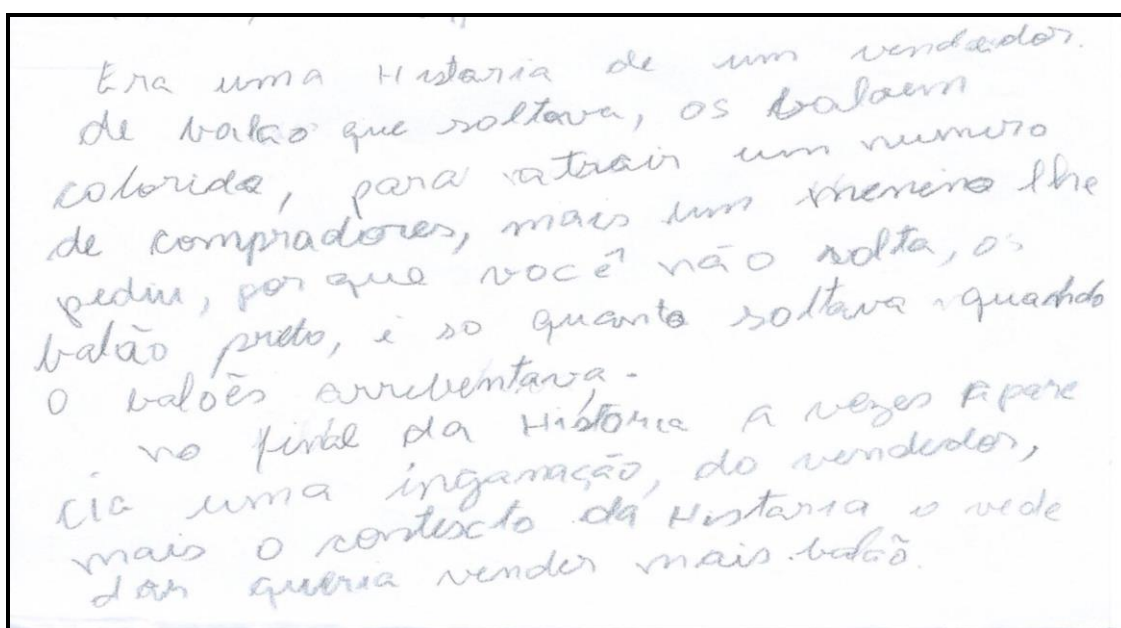 Era uma Histaria de um vendedor.
de balão que soltava, os balaem
colorida, para atrair um numero
de compradores, mais um menino lhe
pediu, por que você não solta, os
balão preto, i so quanto soltava quando
o balões arrebentava.
no final da História a vezes apare
cia uma inganação, do vendedor,
mais o contexcto da Histaria o vede
dor queria vender mais balão.